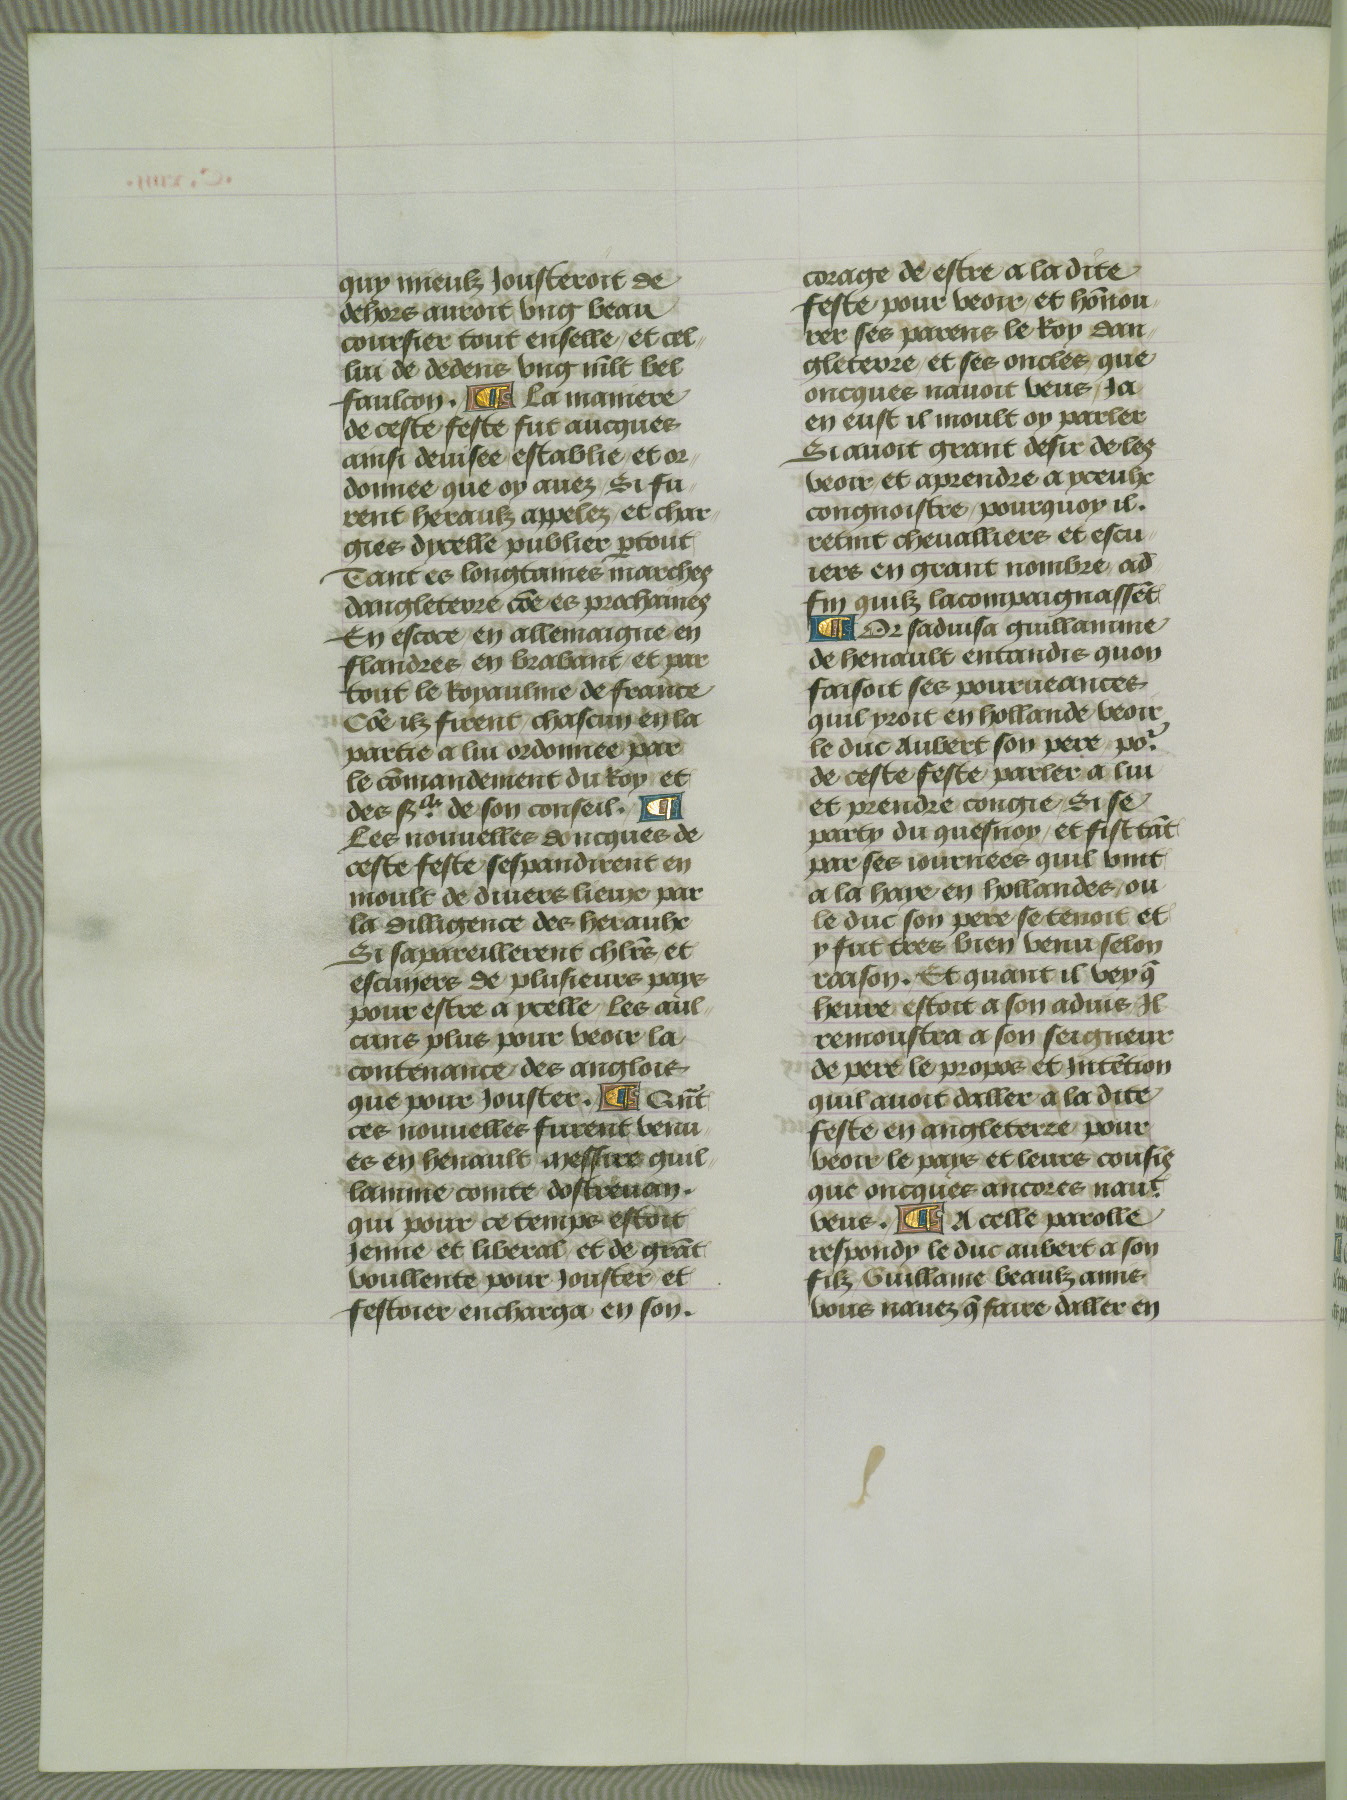 quy mieulz Jousteroit de
dehors auroit vng beau
coursier tout enselle / et cel„
lui de dedens vng mlt bel
faulcon. ¶ La maniere
de ceste feste fut aucques
ainsi deuisee establie / et or„
donnee que oy auez / Si fu„
rent heraulz appelez / et char„
gies dycelle publier ꝑtout
Tant es longtaines marches
dangleterre cōe es prochaines
En escoce / en allemaigne en
flandres / en brabant / et par
tout le Royaulme de france
Cōe ilz firent / chascun en la
partie a lui ordonnee par
le cōmandement du Roy / et
des sgrs de son conseil. ¶
Les nouuelles doncques de
ceste feste sespandirent en
moult de diuers lieux par
la dilligence des heraulx
Si sapareillerent chlrs et
escuyers de plusieurs pays
pour estre a ycelle / Les aul„
cuns plus pour veoir la
contenance / des anglois
que pour Jouster. ¶ Quāt
ces nouuelles furent venu„
es en henault / messire guil„
lamme comte dostreuan.
qui pour ce temps estoit
Jenne et liberal / et de grāt
voullente pour Jouster et
festoier encharga en son.
corage de estre a la dite
feste / pour veoir / et hōnou„
rer ses parens le Roy dan„
gleterre / et ses oncles / que
oncques nauoit veus / Ja
en eust il moult oy parler
Si auoit grant desir de les
veoir / et aprendre a yceulx
congnoistre / pourquoy il.
retint cheualliers et escu„
iers en grant nombre / ad
fin quilz lacompaignassēt
¶ Or saduisa guillamme
de henault entandis quon
faisoit ses pourueances
quil yroit en hollande veoir
le duc Aubert son pere / por
de ceste feste parler a lui
et prendre congie / Si se
party du quesnoy / et fist tāt
par ses iournees quil vint
a la haye / en hollandes / ou
le duc son pere se tenoit et
y fut tres bien venu selon
raison. Et quant il vey q̄
heure estoit a son aduis Il
remoustra a son seigneur
de pere le propos et Jntētion
quil auoit daller a la dite
feste en angleterre / pour
veoir le pays et leurs cousīs
que oncques ancores naut
veus. ¶ A celle parolle
respondy le duc aubert a son
filz Guillāme beaulz amis
vous nauez q̄ faire daller en